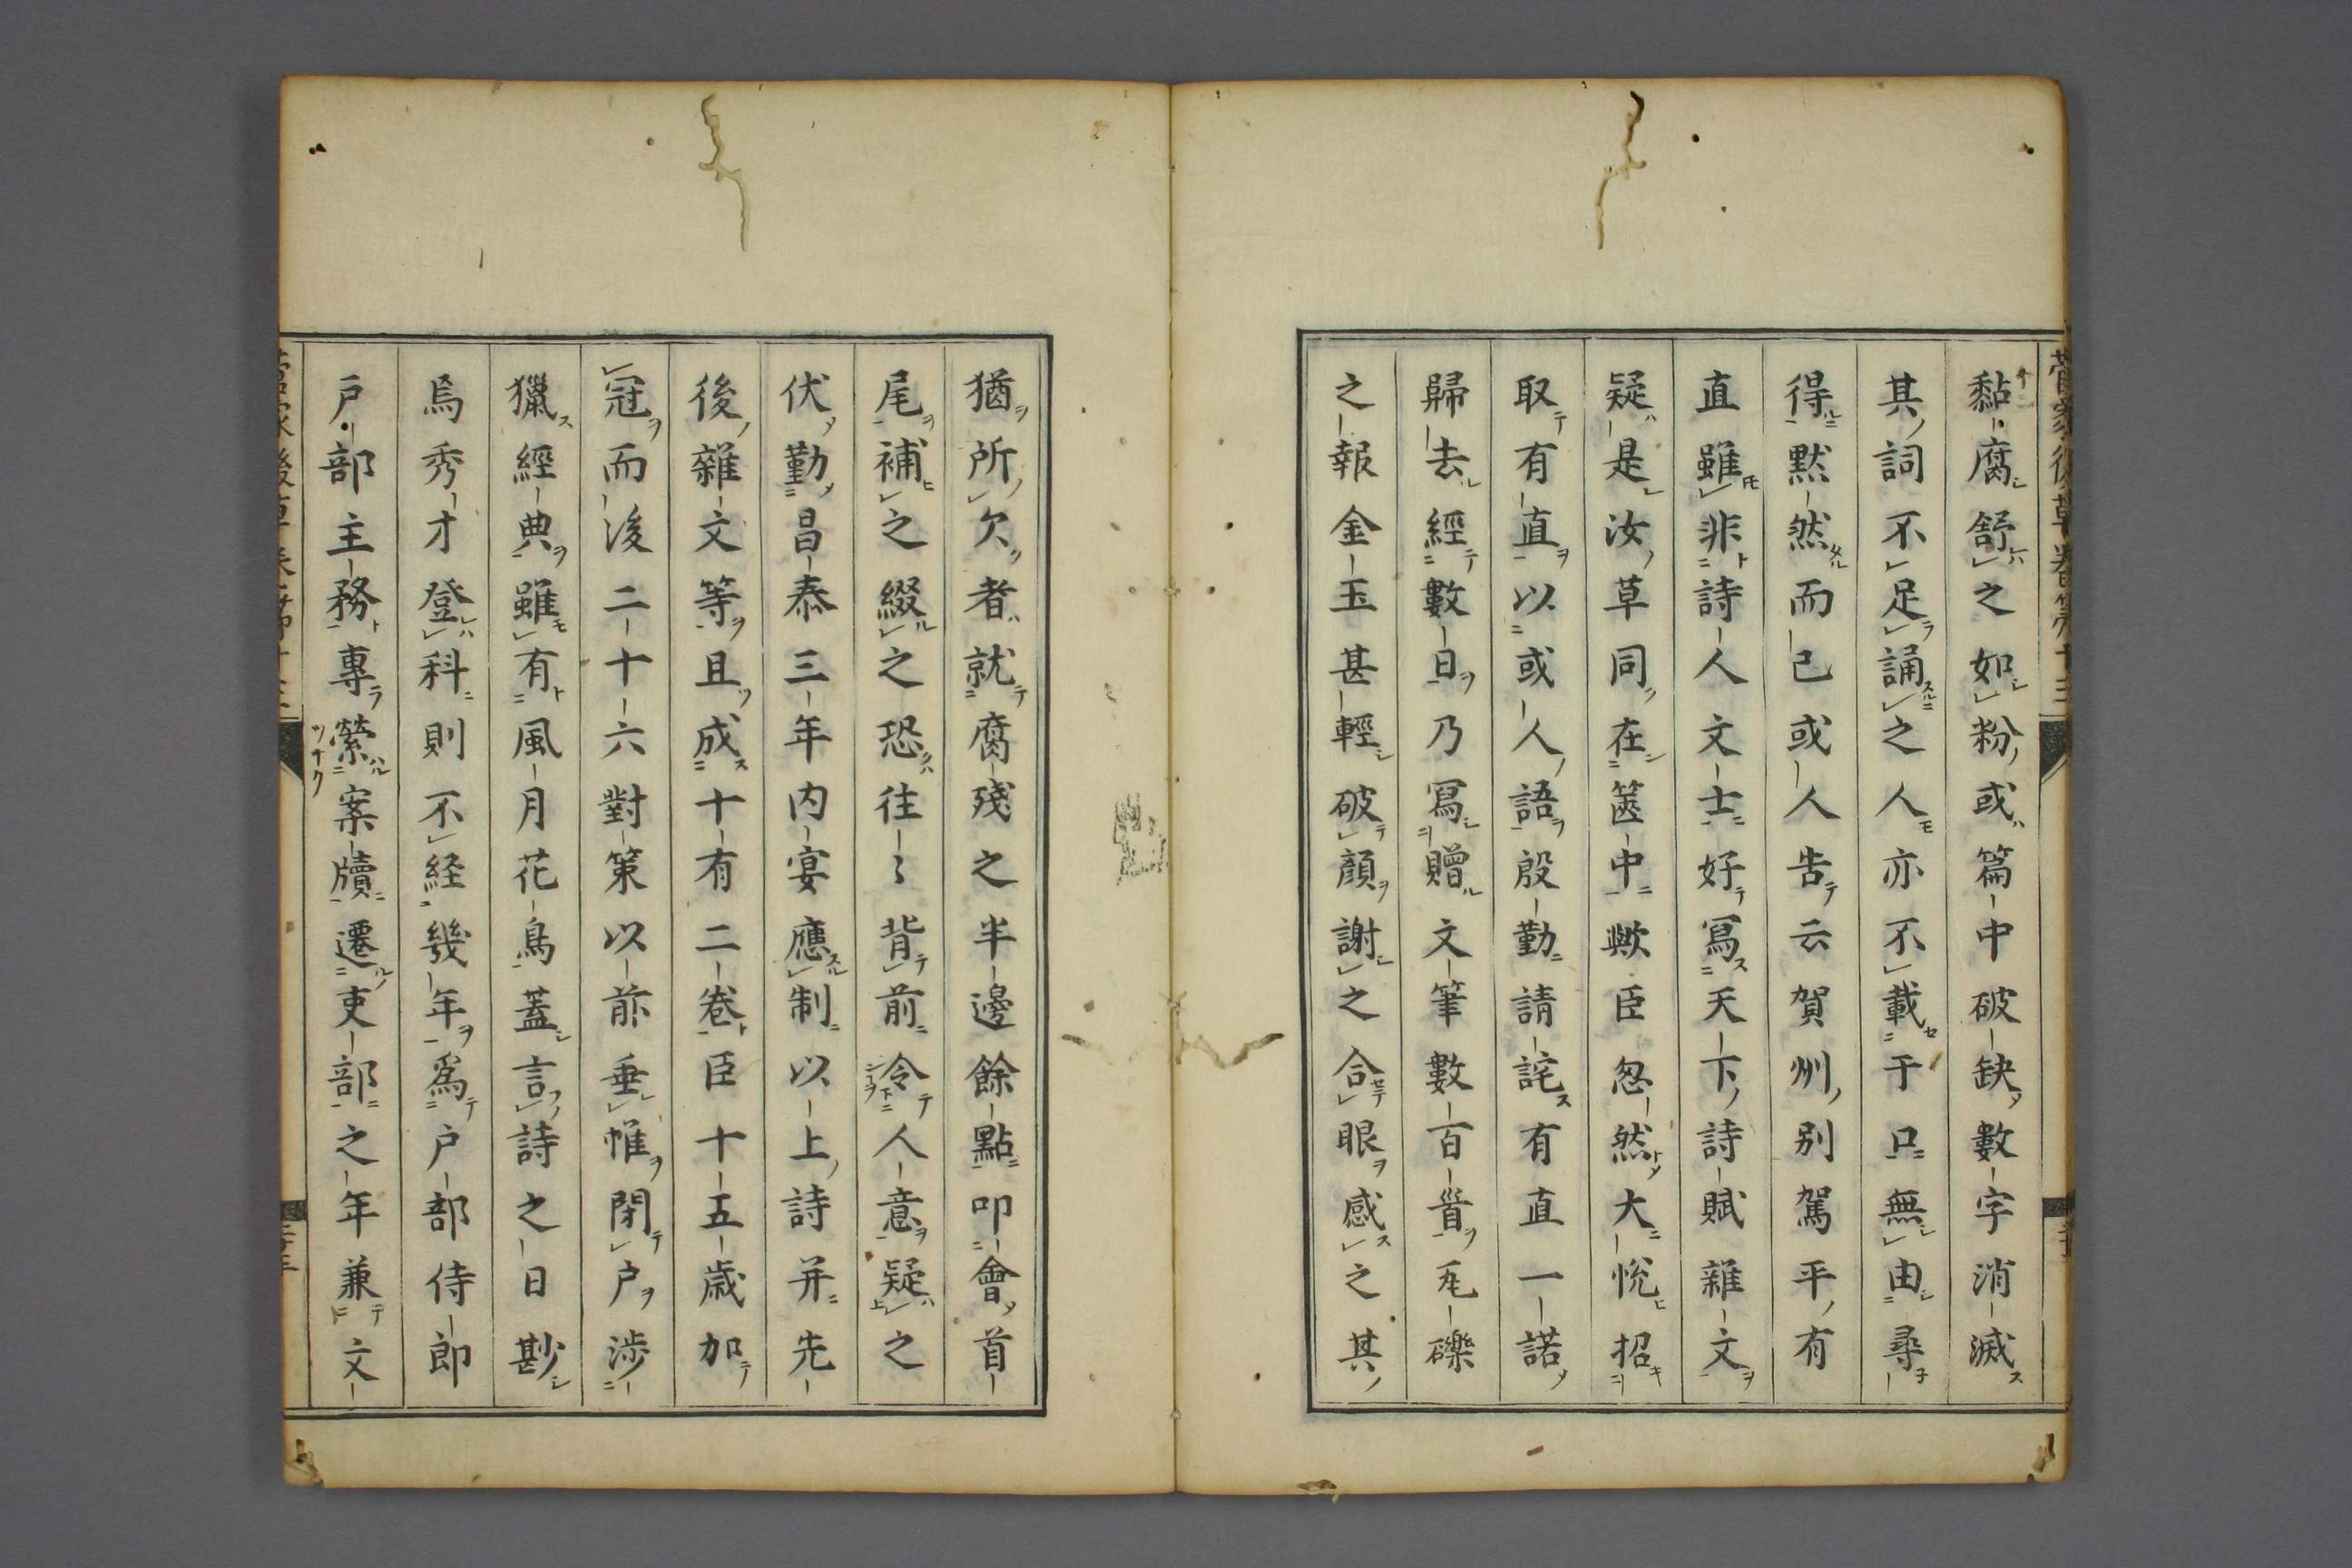 黏腐舒之如粉或篇中破缺數字消滅
其詞不足誦之人亦不載于口無由尋
得黙然而已或人告云賀州別駕平有
直雖非詩人文士好寫天下詩賦雜文
疑是汝草同在篋中歟臣忽然大悅招
取有直以或人語殷勤請詫有直一諾
歸去經數日乃寫贈文筆數百首瓦礫
之報金玉甚輕破顔謝之合眼感之其
猶所欠者就腐殘之半邊餘點叩會首
尾補之綴之恐往〻背前令人意疑之
伏勤昌泰三年内宴應制以上詩并先
後雜文等且成十有二卷臣十五歳加
冠而後二十六對策以前垂帷閉戸渉
獵經典雖有風月花鳥蓋言詩之日尠
焉秀才登科則不経幾年爲戸部侍郎
戸部主務專縈案牘遷吏部之年兼文